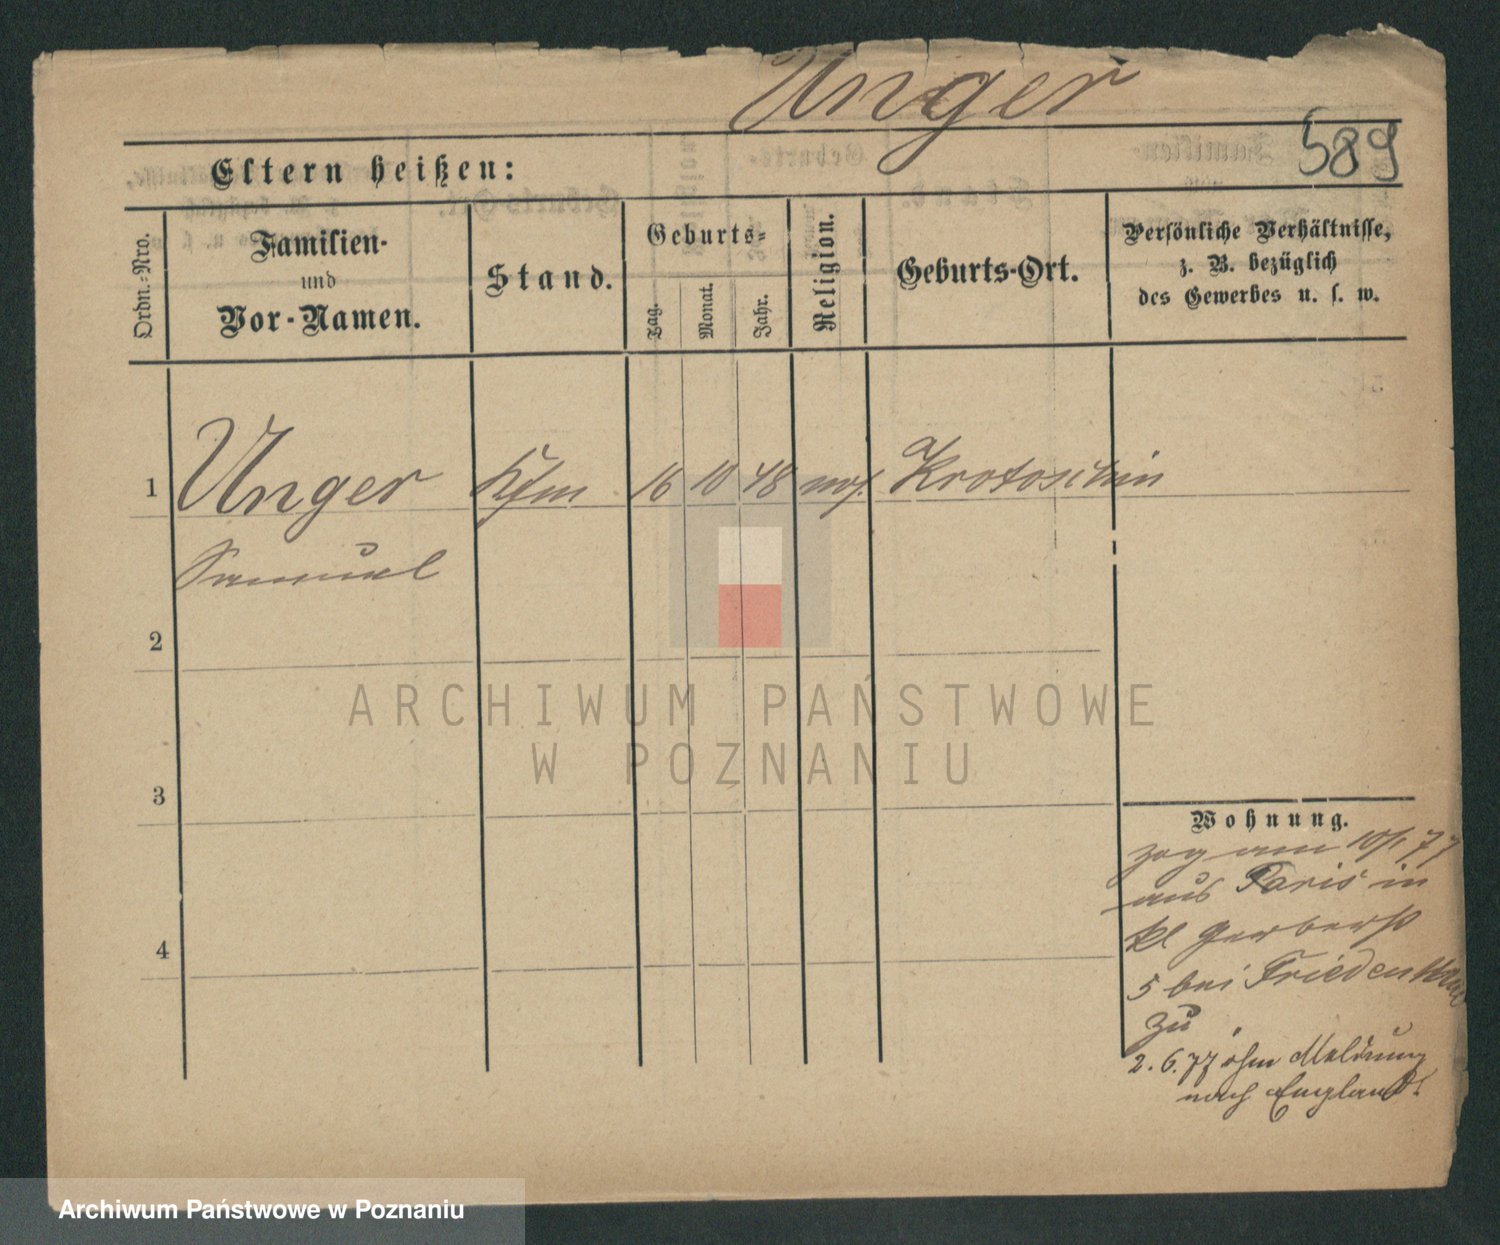 Unger
589
Eltern heißen:
Ordn.-Nro.
Familien-
und
Vor-Namen.
Stand.
Geburts-
Tag.
Monat.
Jahr.
Religion.
Geburts-Ort.
Persönliche Verhältnisse,
z. B. bezüglich
des Gewerbes u. s. w.
1 Unger Kfm 16 10 48 mos. Krotoschin
Samuel
2
3
4
Wohnung.
zog am 10/1 77
aus Paris in
kl Gerberst
5 bei Friedenthal
zu
2. 6. 77 ohne Meldung
nach England.
ARCHIWUM PAŃSTWOWE
W POZNANIU
Archiwum Państwowe w Poznaniu